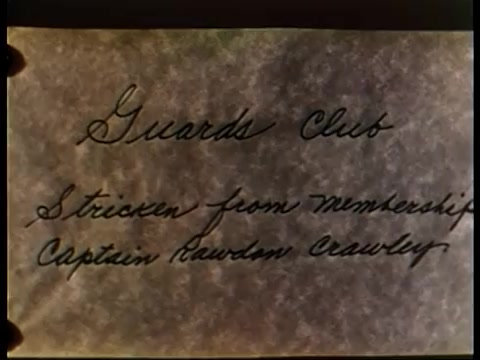 Guards Club
Stricken from membership
Captain Rawdon Crawley